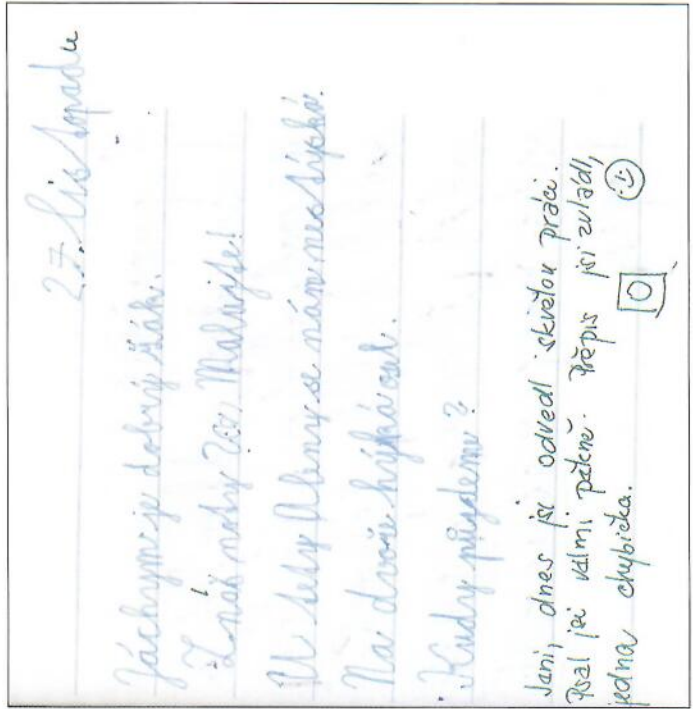 27. listopadu
Jáchym je dobrý žák.
Znáš noty Malujte!
U tety Aleny se nám nestýská.
Na dvoře hýká osel.
Kudy půjdeme?
Jani, dnes jsi odvedl skvělou práci.
Psal jsi velmi pěkně. Přepis jsi zvládl,
jedna chybička.